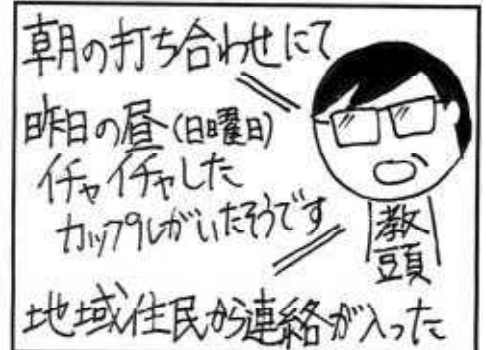 朝の打ち合わせにて
昨日の昼(日曜日)
イチャイチャした
カップルがいたそうです
教頭
地域住民から連絡が入った